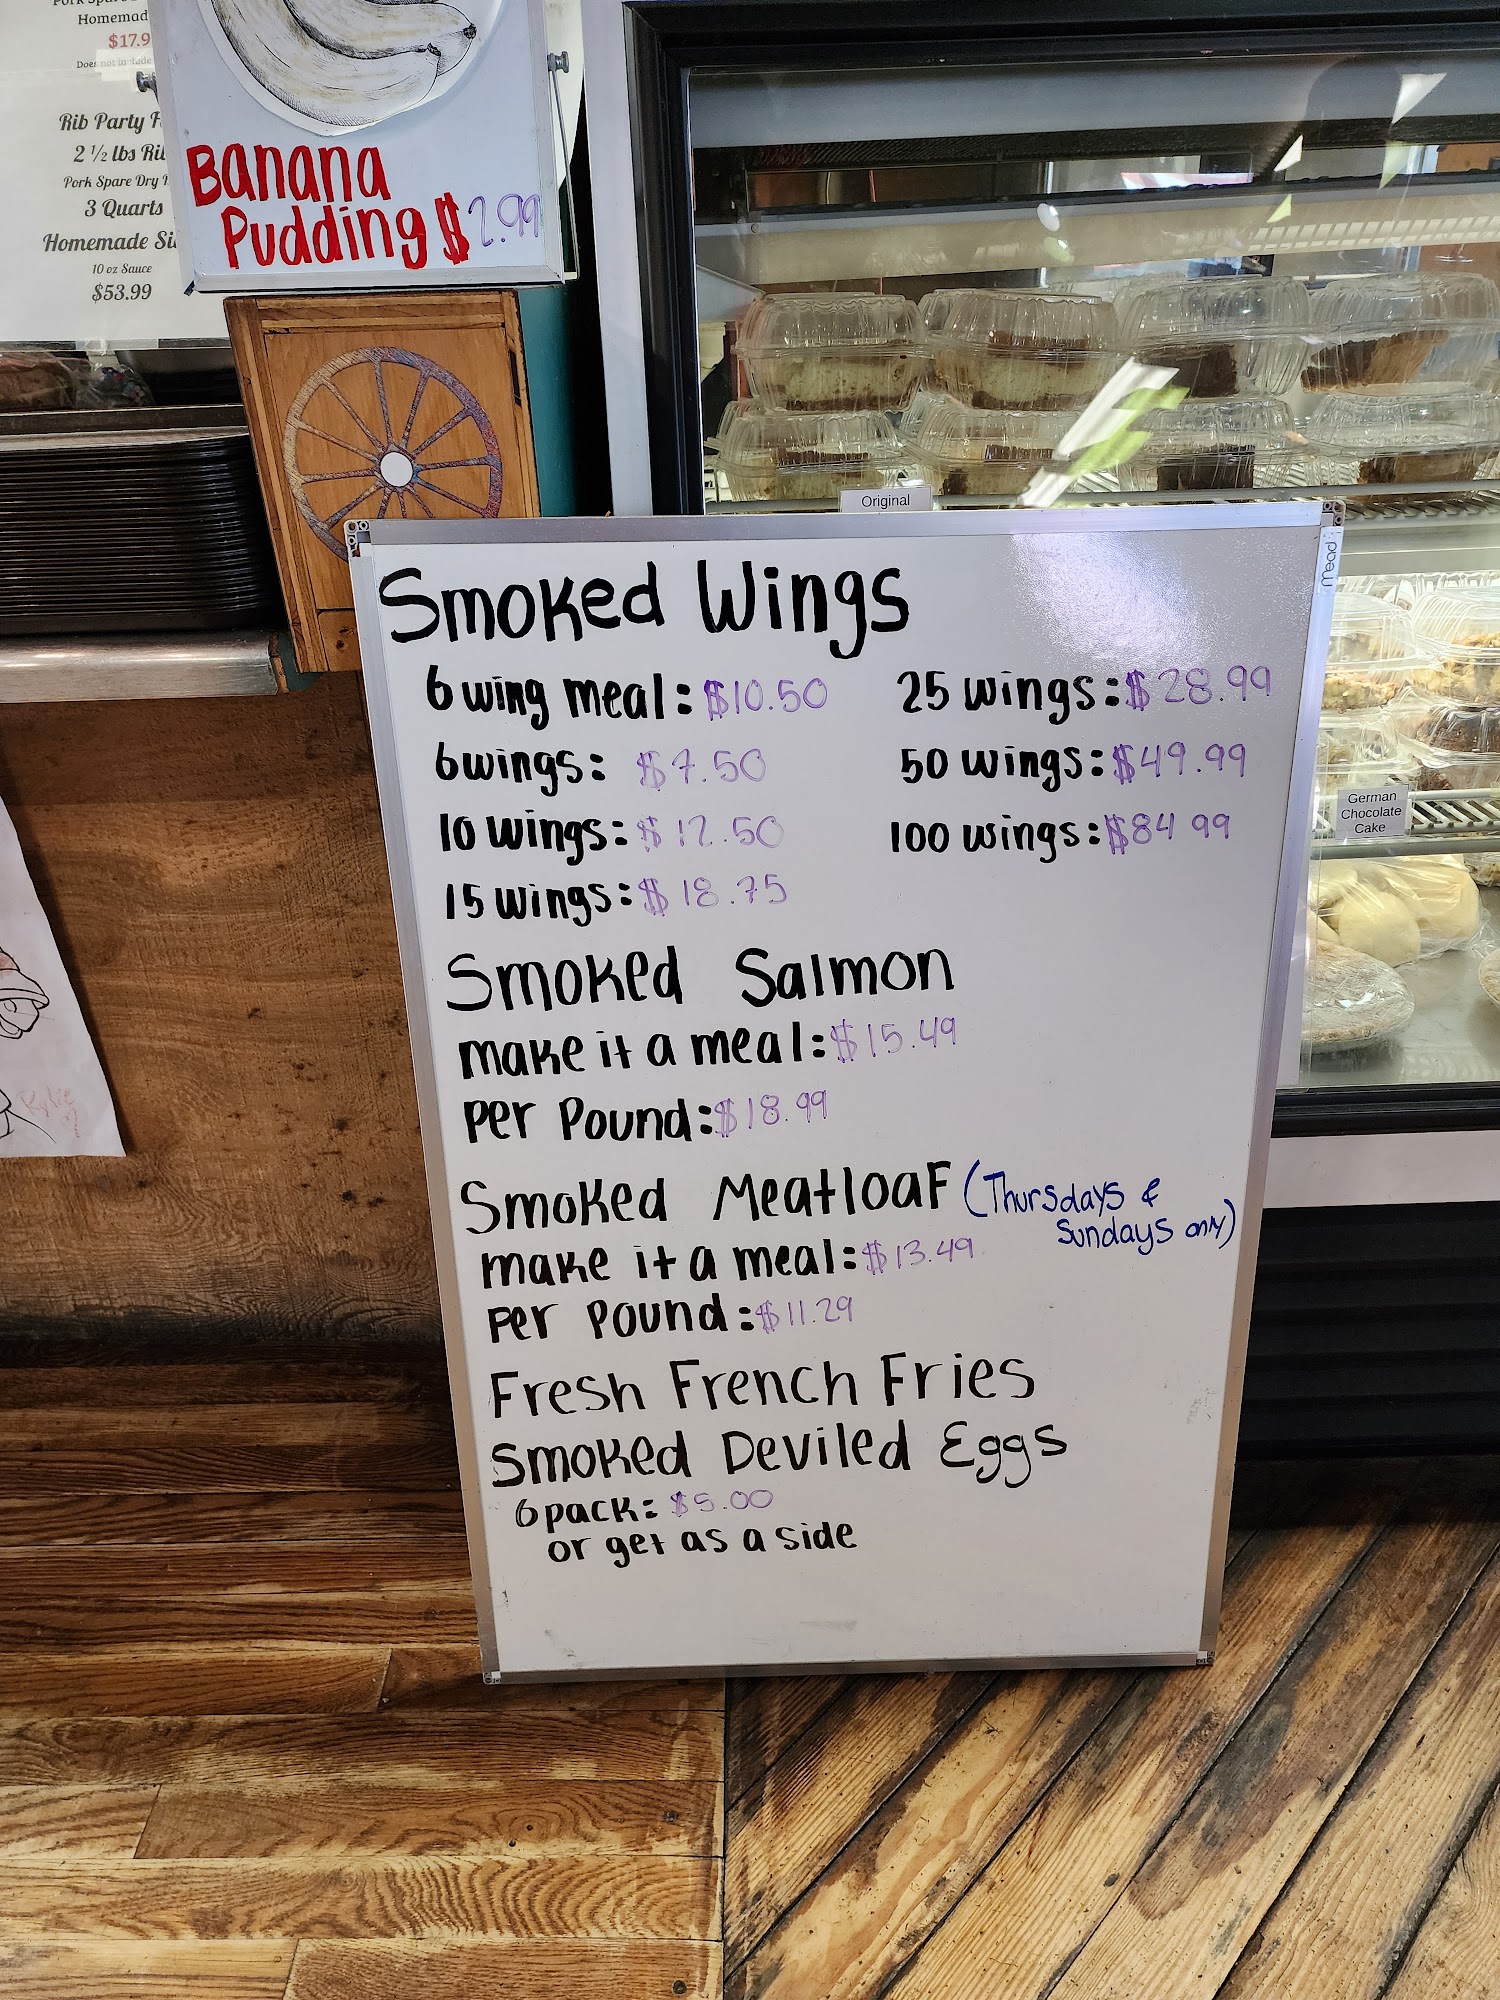 Homemad
$17.9
Does not include
Rib Party
2 ½ lbs
Pork Spare Dry
3 Quarts
Homemade
10 oz Sauce
$53.99
Banana
Pudding $2.99
Original
mead
Smoked Wings
6 wing meal: $10.50
25 wings: $28.99
6 wings: $7.50
50 wings: $49.99
10 wings: $12.50
100 wings: $84.99
15 wings: $18.75
Smoked Salmon
make it a meal: $15.49
per Pound: $18.99
Smoked Meatloaf (Thursdays &
Sundays only)
make it a meal: $13.49
per Pound: $11.29
Fresh French Fries
Smoked Deviled Eggs
6 pack: $5.00
or get as a side
German
Chocolate
Cake